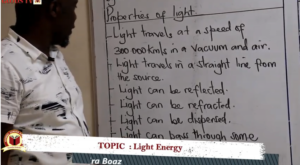 Properties of Light
- Light travels at a speed of
300 000 km/s in a vacuum and air.
- Light travels in a straight line from
the source.
- Light can be reflected.
- Light can be refracted.
- Light can be dispersed.
- Light can pass through some
TOPIC : Light Energy
ra Boaz